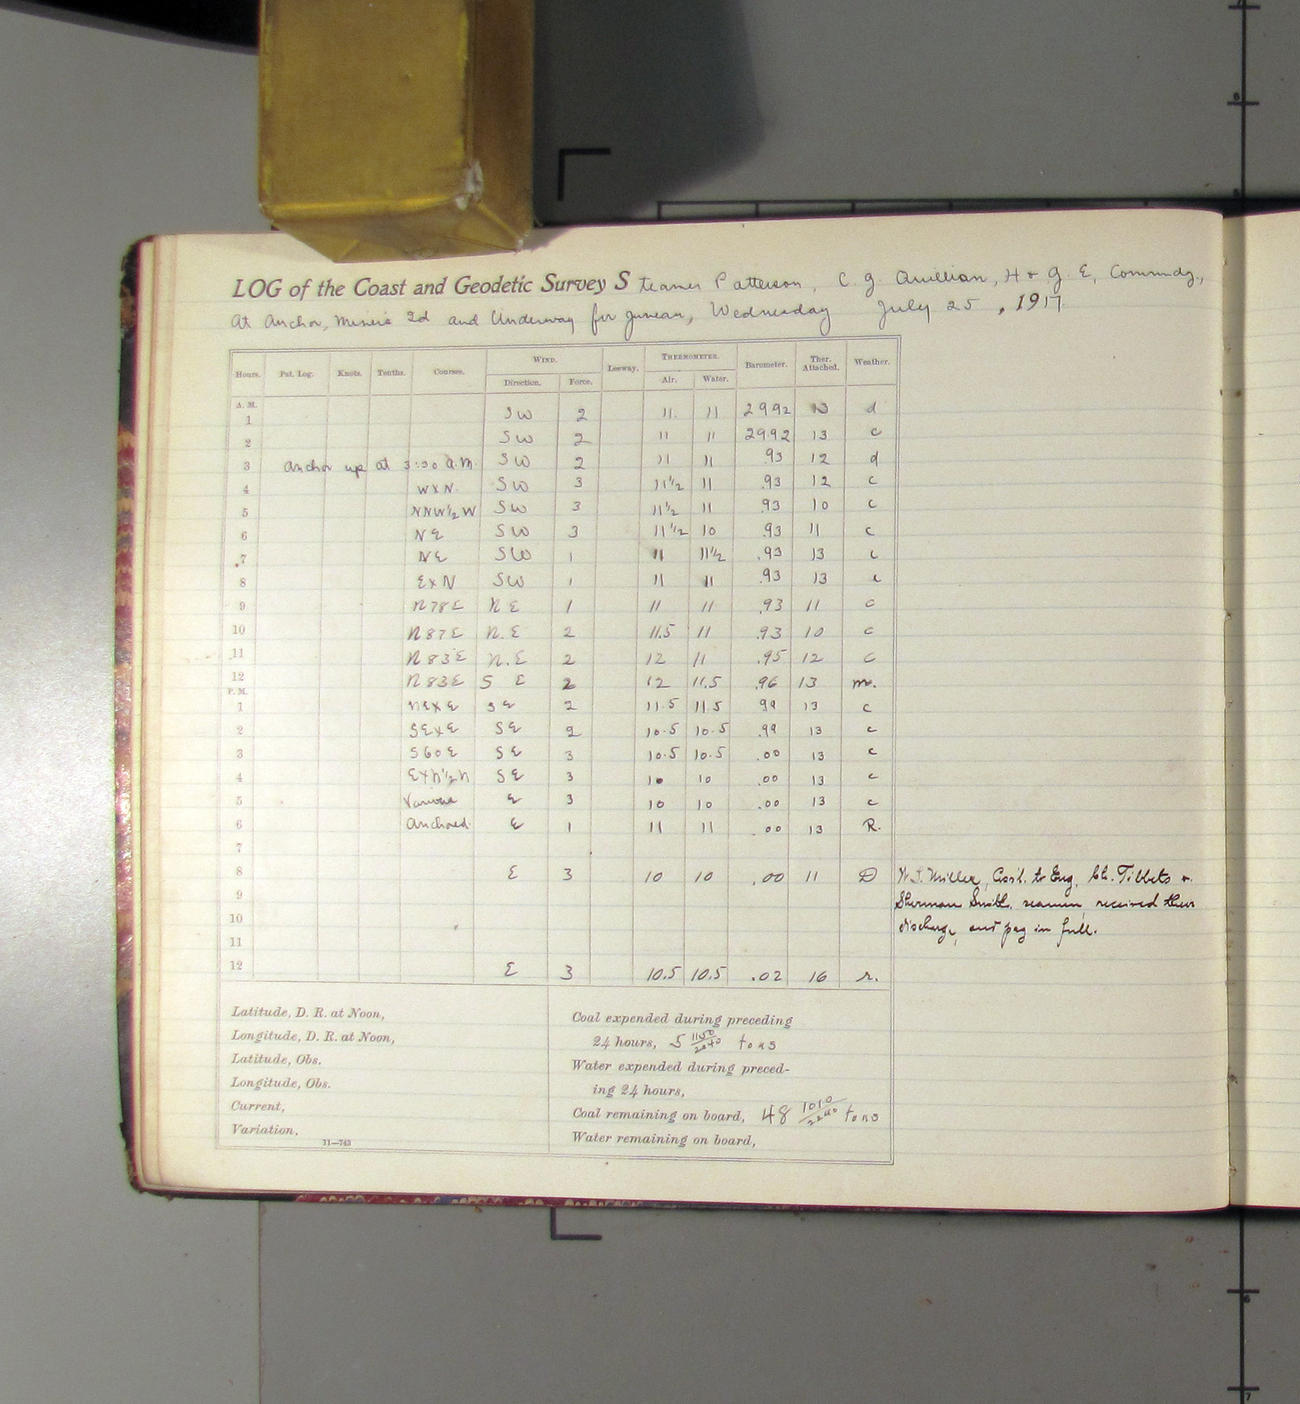 LOG of the Coast and Geodetic Survey Steamer Patterson, C. G. Quillian, H + G. E, Commdg,
At Anchor, Miners Id and Underway for Juneau, Wednesday July 25, 1917
Hours. Pat. Log. Knots. Tenths. Courses. WIND. Direction. Force. Leeway. THERMOMETER. Air. Water. Barometer. Ther. Attached. Weather.
A. M.
1 SW 2 11 11 2992 13 d
2 SW 2 11 11 2992 13 c
3 anchor up at 3:30 a.m. SW 2 11 11 .93 12 d
4 WXN SW 3 11 1/2 11 .93 12 c
5 NNW 1/2 W SW 3 11 1/2 11 .93 10 c
6 NE SW 3 11 1/2 10 .93 11 c
7 NE SW 1 11 11 1/2 .93 13 c
8 EXN SW 1 11 11 .93 13 c
9 N78E NE 1 11 11 .93 11 c
10 N87E N.E 2 11.5 11 .93 10 c
11 N83E N.E 2 12 11 .95 12 c
12 N83E S E 2 12 11.5 .96 13 m.
P. M.
1 NEXE SE 2 11.5 11.5 99 13 c
2 SEXE SE 2 10.5 10.5 .99 13 c
3 S60E SE 3 10.5 10.5 .00 13 c
4 EXN 1/2 N SE 3 10 10 .00 13 c
5 Various E 3 10 10 .00 13 c
6 Anchored. E 1 11 11 .00 13 R.
7
8 E 3 10 10 .00 11 D Miller, to Eng, Ch. Tibbets +
9 Sherman Smith, seamen, received their
10 discharge, and pay in full.
11
12 E 3 10.5 10.5 .02 16 r.
Latitude, D. R. at Noon,
Longitude, D. R. at Noon,
Latitude, Obs.
Longitude, Obs.
Current,
Variation,
11—743
Coal expended during preceding
24 hours, 5 1150/2240 tons
Water expended during preced-
ing 24 hours,
Coal remaining on board, 48 1010/2240 tons
Water remaining on board,